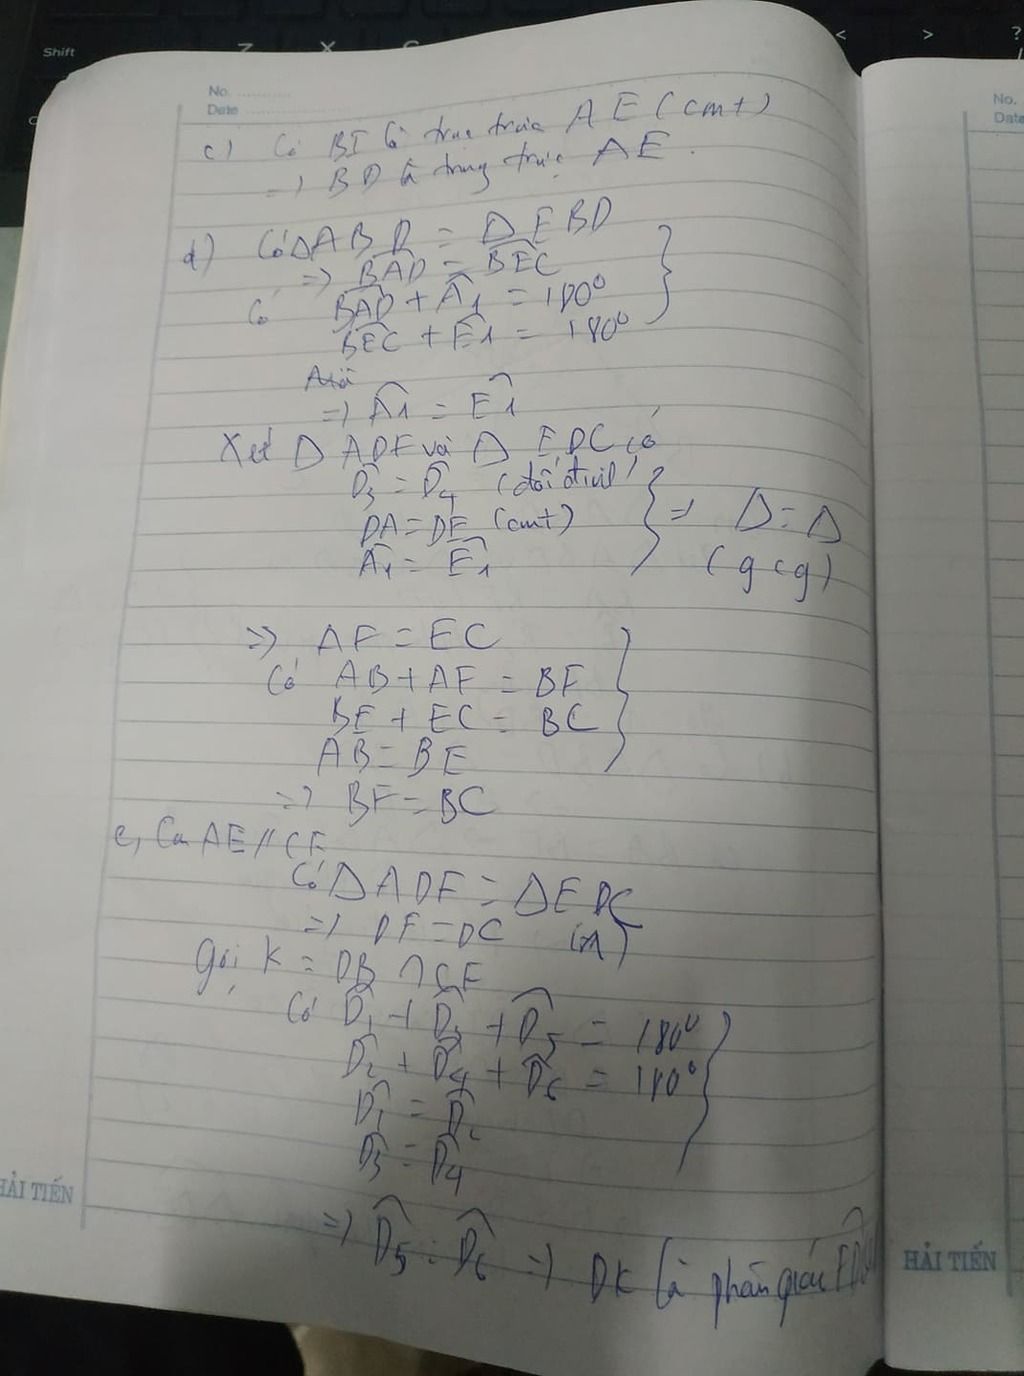 Shift
Z X C < > ?
No. ............
Date ..................
c) Có BI là trung trực AE (cmt)
=> BD là trung trực AE.
d) Có Δ ABD = Δ EBD
=> BAD = BEC
Có BAD + A1 = 180°
BEC + E1 = 180°
=> A1 = E1
Xét Δ ADF và Δ EDC có
D3 = D4 (đối đỉnh)
DA = DE (cmt)
A1 = E1
=> Δ = Δ
(gcg)
=> AF = EC
Có AB + AF = BF
BE + EC = BC
AB = BE
=> BF = BC
e, Cm AE // CF
Có Δ ADF = Δ EDC
=> DF = DC
Gọi K = DB ∩ CF
Có D1 + D3 + D5 = 180°
D2 + D4 + D6 = 180°
D1 = D2
D3 = D4
=> D5 = D6 => DK là phân giác
HẢI TIẾN
No.
Date
HẢI TIẾN